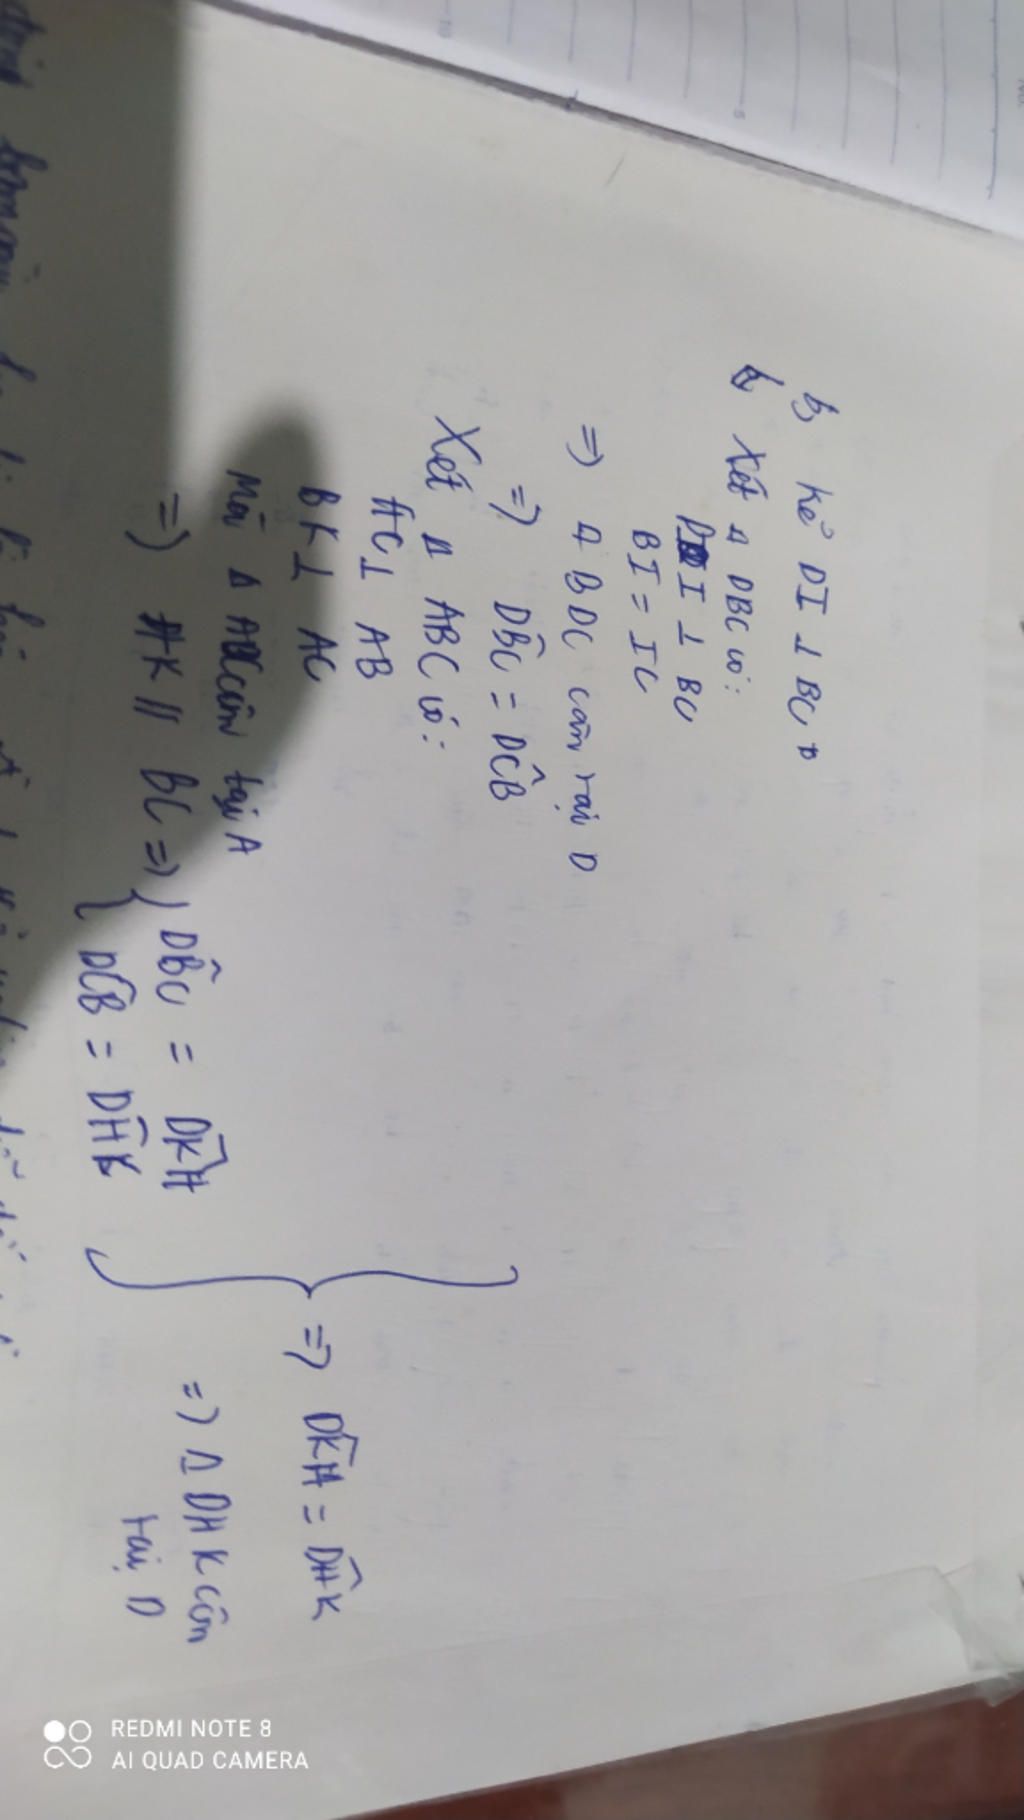 b, Kẻ DI ⊥ BC
Xét Δ DBC có:
DI ⊥ BC
BI = IC
=> Δ BDC cân tại D
=> DB̂C = DĈB
Xét Δ ABC có:
HC ⊥ AB
BK ⊥ AC
Mà Δ ABC cân tại A
=> HK // BC => { DB̂C = DK̂H
DĈB = DĤK
=> DK̂H = DĤK
=> Δ DHK cân
tại D
REDMI NOTE 8
AI QUAD CAMERA